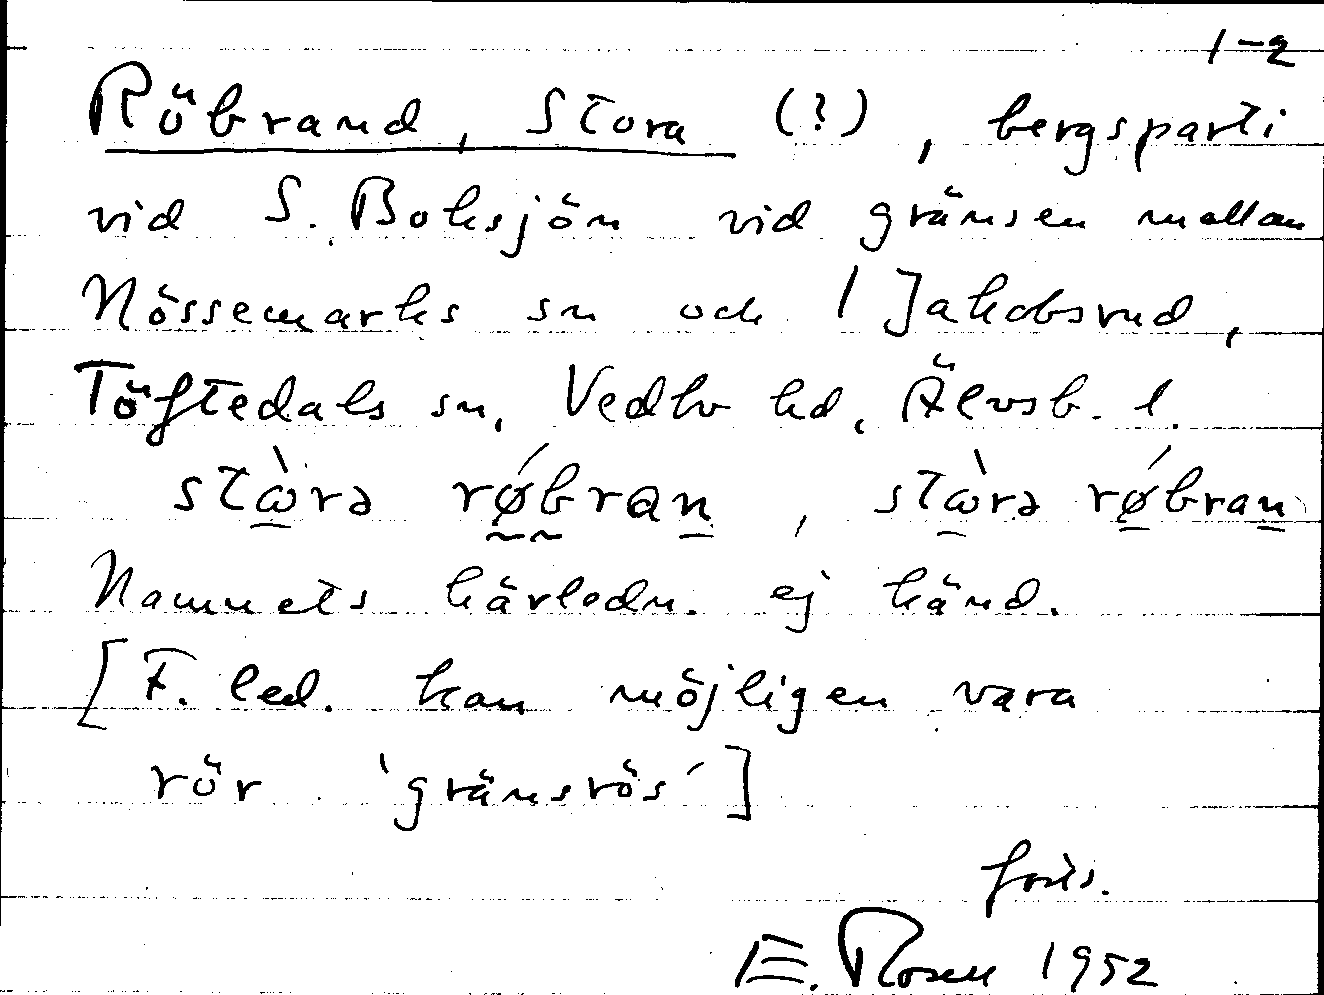 1-2
Röbrand, Stora (?), bergsparti
vid S. Boksjön vid gränsen mellan
Nössemarks sn och / Jakobsrud,
Töftedals sn, Vedbo hd, Älvsb. l.
stὼrə rǿbran, stὼrə rǿbran
Namnets härledn. ej känd.
[F. led. kan möjligen vara
rör 'gränsrös']
forts.
E. Rosell 1952